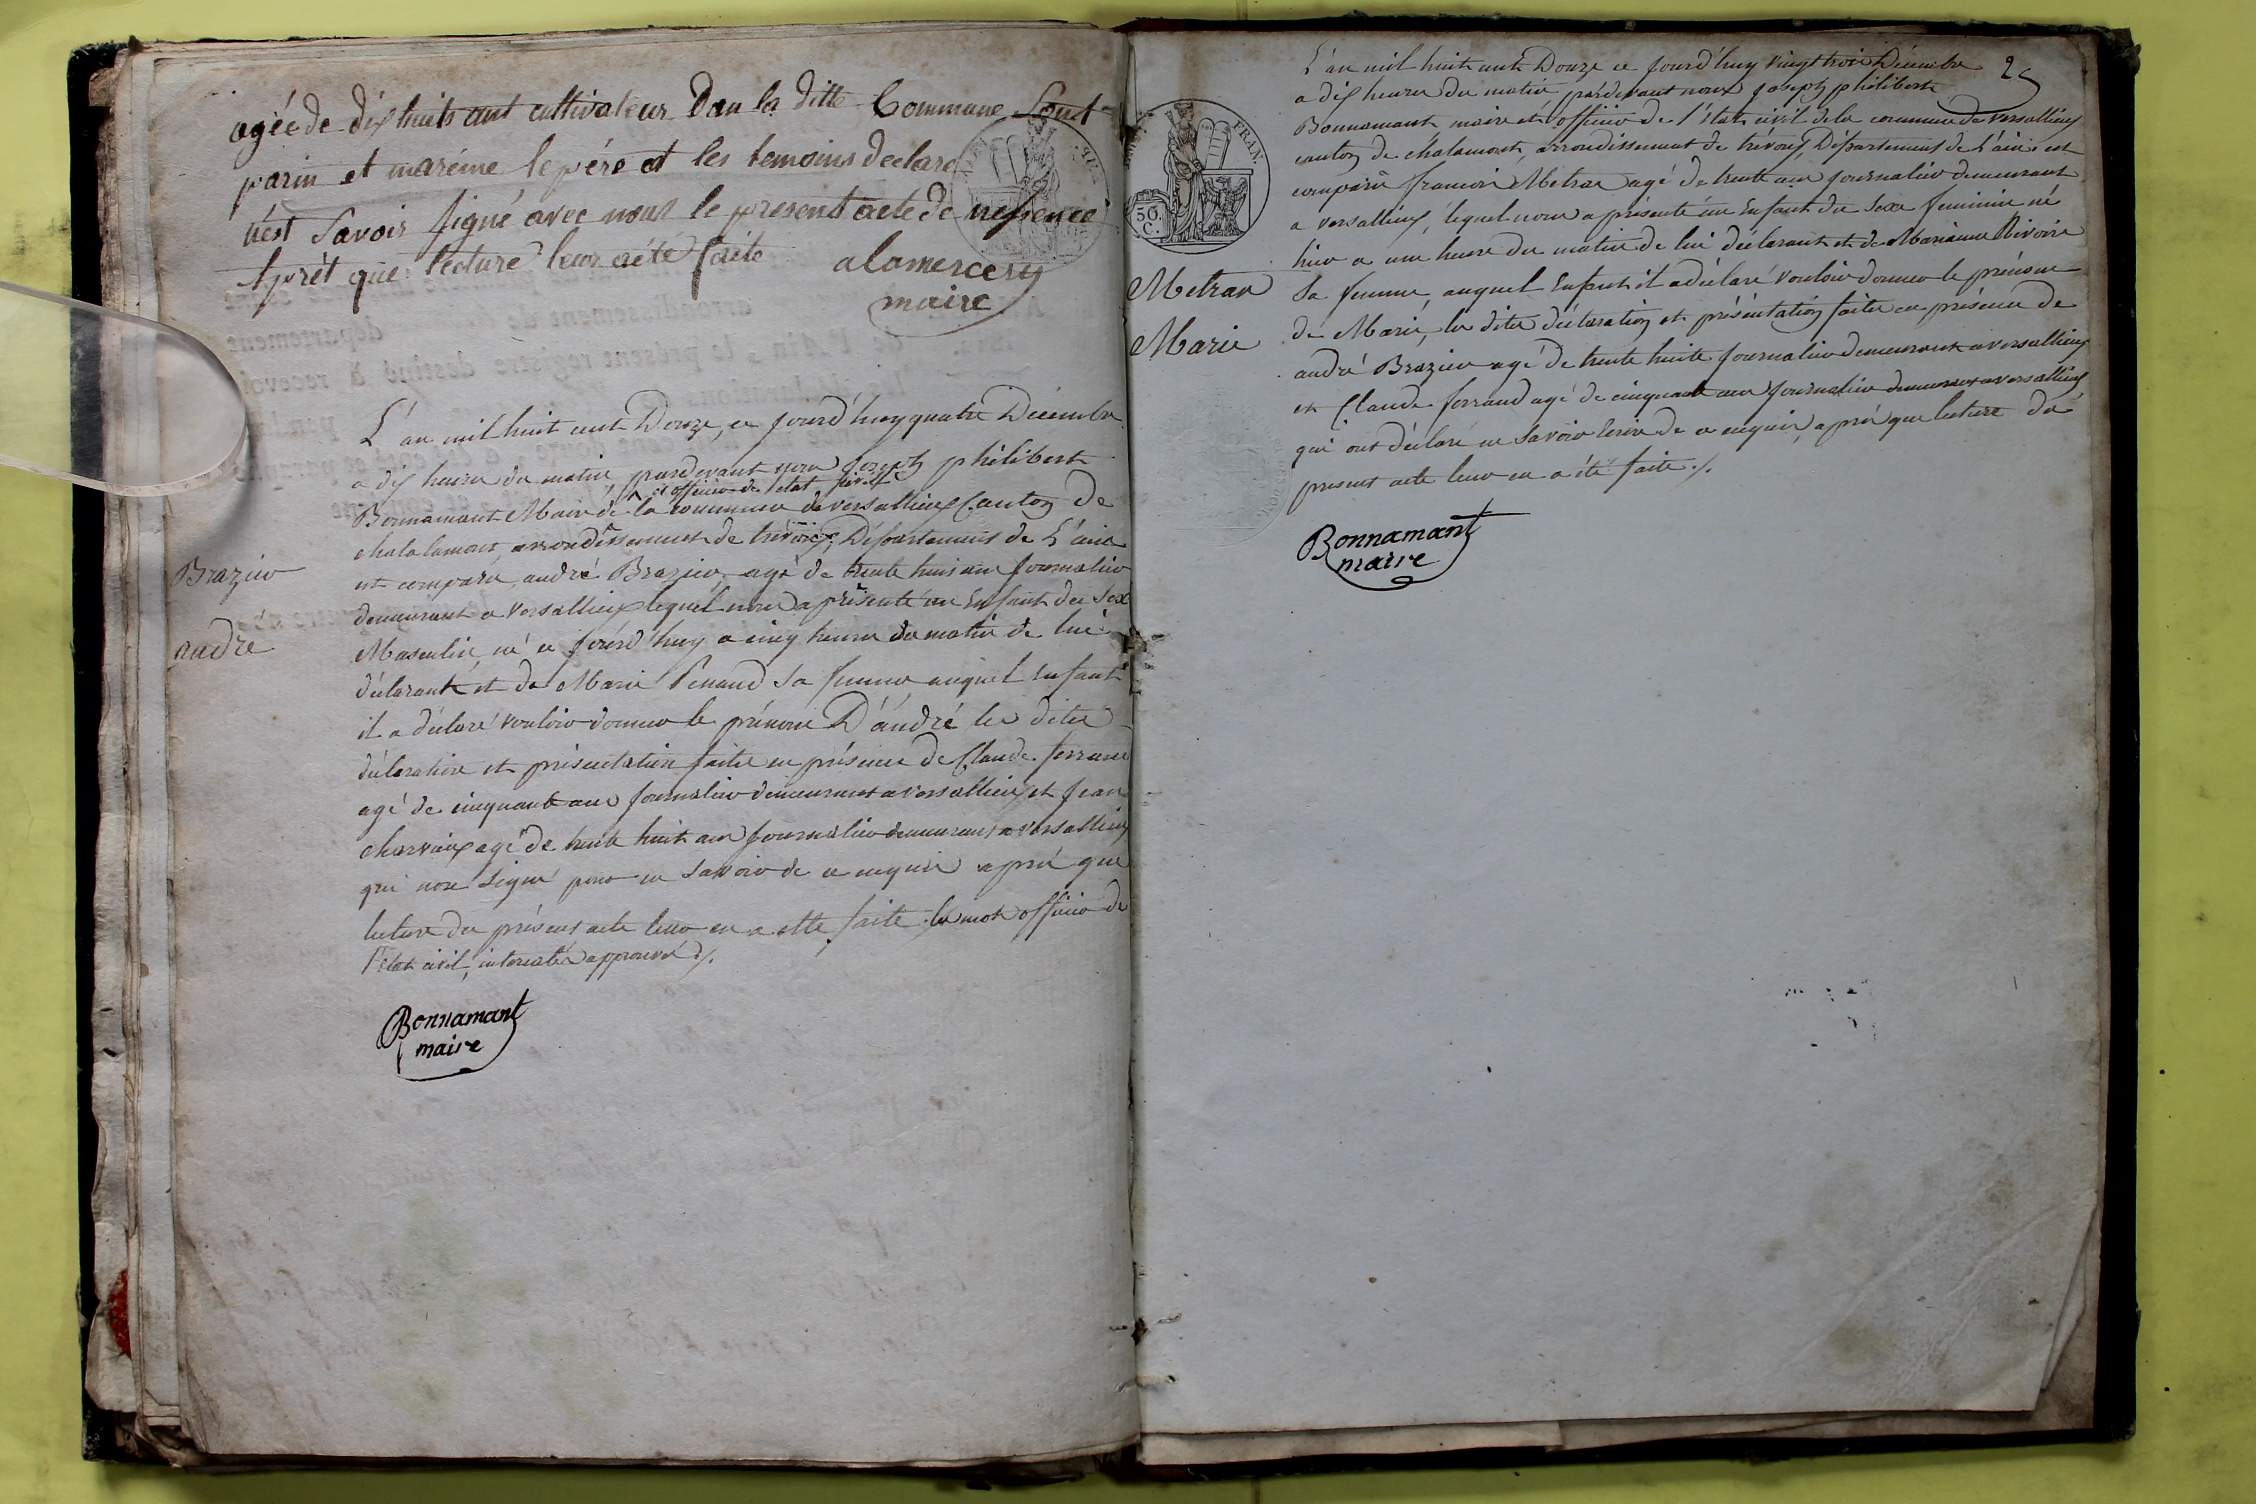 agéé de dix huits ant cultivateur Dan la ditte Commune Sont
parin et maréine le pére et les temoins declare
n'est Savoir Signé avec nous le present acte de nessence
Aprét que lecture leur aété faite
alamercery
maire
Brazier
andré
L'an mil huit cent Douze, ce jourd'huy quatre Décembre
a dix heures du matin, pardevant nous joseph philibert
et officier de letat civil
Bonnamant Maire de la commune de versallieux Canton de
chalalamont, arrondissement de trévoux, Département de L'ain
est comparu, andré Brazier, agé de trente huit ans journalier
demeurant a versallieux lequel nous a présenté un Enfant du Sexe
Masculin, né ce jourd'huy a cinq heures du matin de lui
déclarant et de Marie Penaud Sa femme auquel Enfant
il a déclaré vouloir donner le prénom D'andré les dites
déclaration et présentation faites en présence de Claude ferrand
agé de cinquante ans journalier demeurant a versallieux et jean
charvaix agé de trente huit ans journalier demeurant a versallieux
qui nont Signé pour ne Savoir de ce enquis apré que
lecture du présent acte leur en a etté faite. les mots officier de
l'état civil, interealés approuvés ./.
Bonnamant
maire
25
30.
C.
FRAN.
L'an mil huit cent Douze ce jourd'huy vingt trois Décembre
a dix heures du matin, pardevant nous joseph philibert
Bonnamant maire et officier de l'état civil de la commune de versallieux
canton de chalamont, arrondissement de trévoux, Département de L'ain est
comparu francois Metran agé de trente ans journalier demeurant
a versallieux, lequel nous a présenté un Enfant du Sexe feminin né
hier a une heure du matin de lui déclarant et de Marianne Rivoire
Sa femme, auquel Enfant il a déclaré vouloir donner le prénom
de Marie, les dites déclaration et présentation faites en présence de
andré Brazier agé de trente huite journalier demeurant a versallieux
et Claude ferrand agé de cinquante ans journalier demeurant a versallieux
qui ont déclaré ne Savoir Ecrire de ce enquis, apré que lecture du
present acte leur en a été faite ./.
Metran
Marie
Bonnamant
maire